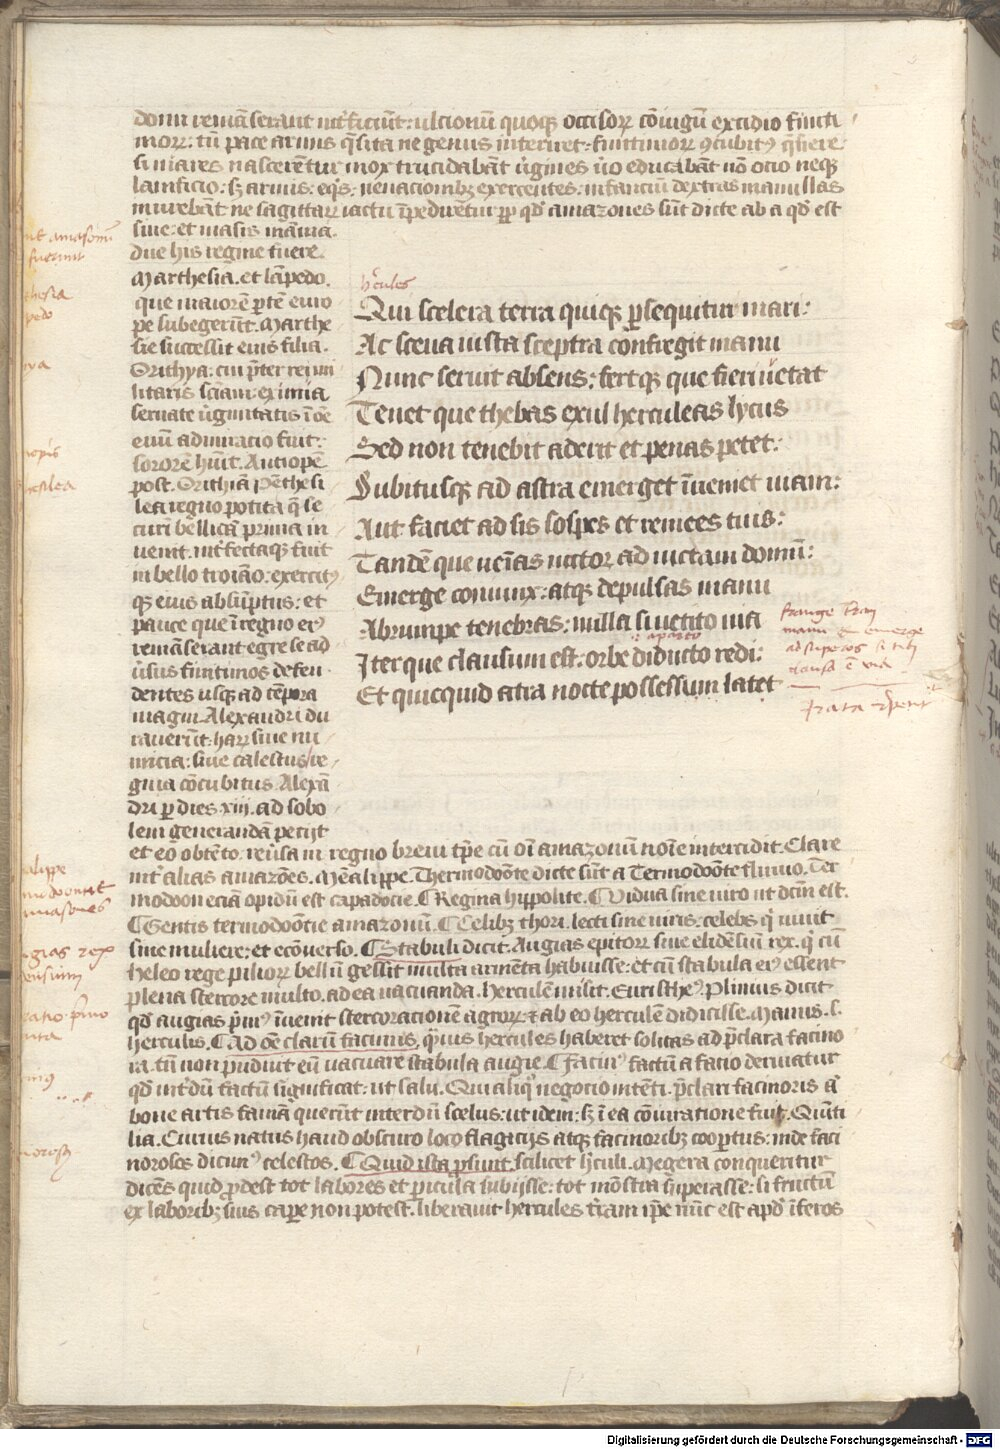 domi remāserant int̄ficiūt: ulcionū quoq; occisoꝝ cōiugū excidio finiti
moꝝ: tū pace armis q̄sita ne genus interiret: finitimoꝝ ꝯcubitꝰ q̄siere:
si mares nascerētur mox trucidabāt ūgines ūo educabāt nō ocio neq;
lanificio: sꝫ armis: eq̄s: uenacionibꝫ exercentes: infanciū dextras mamillas
inurebāt ne sagittaꝝ iactu īpedirētur ꝓp̄ qđ amazones sūt dicte ab a qđ est
siue: et masis māma.
due his regine fuere.
Marthesia. et lāpedo.
que maiorē ꝑtē euro
pe subegerūt. Marthe
sie successit eius filia.
Orithya: cui p̄ter rei mi
litaris sciam: eximia
seruate ūginitatis ī oē
euū admiratio fuit:
sororē huit. Antiopē
post. Orithiā Pēthesi
lea regno potita q̄ se
curi bellicā prima in
uenit. int̄fectaq; fuit
in bello troiāo: exercitꝰ
q; eius absūptus: et
pauce que ī regno eiꝰ
remāserant egre se ad
ūsus finitimos defen
dentes usq; ad tēpora
magni Alexandri du
rauerūt: haꝝ siue mi
nicia: siue calestus re
gina cōcubitus Alexā
dri ꝑ dies xiii. ad sobo
lem generandā petijt
hercules
Qui scelera terra quiq; ꝑsequitur mari:
Ac sceua iusta sceptra confregit manu
Nunc seruit absens: fertq; que fieri uetat
Tenet que thebas exul herculeas lycus
Sed non tenebit aderit et penas petet:
Subitusq; ad astra emerget īueniet uiam:
Aut faciet ad sis sospes et remees tuis:
Tandē que ueīas uictor ad uictam domū:
Emerge coniunx: atq; depulsas manu
Abrumpe tenebras: nulla si uetito uia
aparto
Iterque clausum est: orbe diducto redi:
Et quicquid atra nocte possessum latet
manu emerge
ad superos si tibi
clausa ē via
et eo obtēto: reūsa in regno breui tp̄e cū oī amazonū noīe intercidit. Clare
int̄ alias amazōes. Mēalippe. Thermodoōte dicte sūt a Termodoōte fluuio. Ter
modoon eciā opidū est capadocie. ¶ Regina hippolite. ¶ Vidua sine uiro ut dcm̄ est.
¶ Gentis termodoōtie amazonū. ¶ Celibꝫ thori. lecti sine uiris: celebs q̄ uiuit
sine muliere: et ecōuerso. ¶ Stabuli dicit. Augias epitoꝝ siue elidēsiū rex. q̄ cū
Neleo rege pilioꝝ bellū gessit multa armēta habuisse: et cū stabula eiꝰ essent
plena stercore multo. ad ea uacuanda. Herculē misit. Euristheꝰ. Plinius dicit
qđ augias p̄mꝰ īuenit stercoracionē agroꝝ ⁊ ab eo herculē didicisse. Manus. s.
herculis. ¶ Ad oē clarū facinus. q̄uis hercules haberet solitas ad p̄clara facino
ra: tū non puduit eū uacuare stabula augie. ¶ Facinꝰ factū a facio deriuatur
qđ int̄dū factū significat: ut salu. Qui aliq̊ negocio intēti. p̄clari facinoris a
bone artis famā querūt interdū scelus: ut idem: sꝫ ī ea cōiuratione fuit. Quīti
lia. Curius natus haud obscuro loco flagicijs atq; facinoribꝫ cooꝑtus: inde faci
norosos dicunꝰ celestos. ¶ Quid ista ꝓsunt. scilicet hculi. Megera conqueritur
dicēs quid ꝓdest tot labores et ꝑicula subijsse: tot mōstra superasse: si fructū
ex laboribꝫ suis caꝑe non potest. liberauit hercules t̄ram ip̄e nūc est apđ īferos